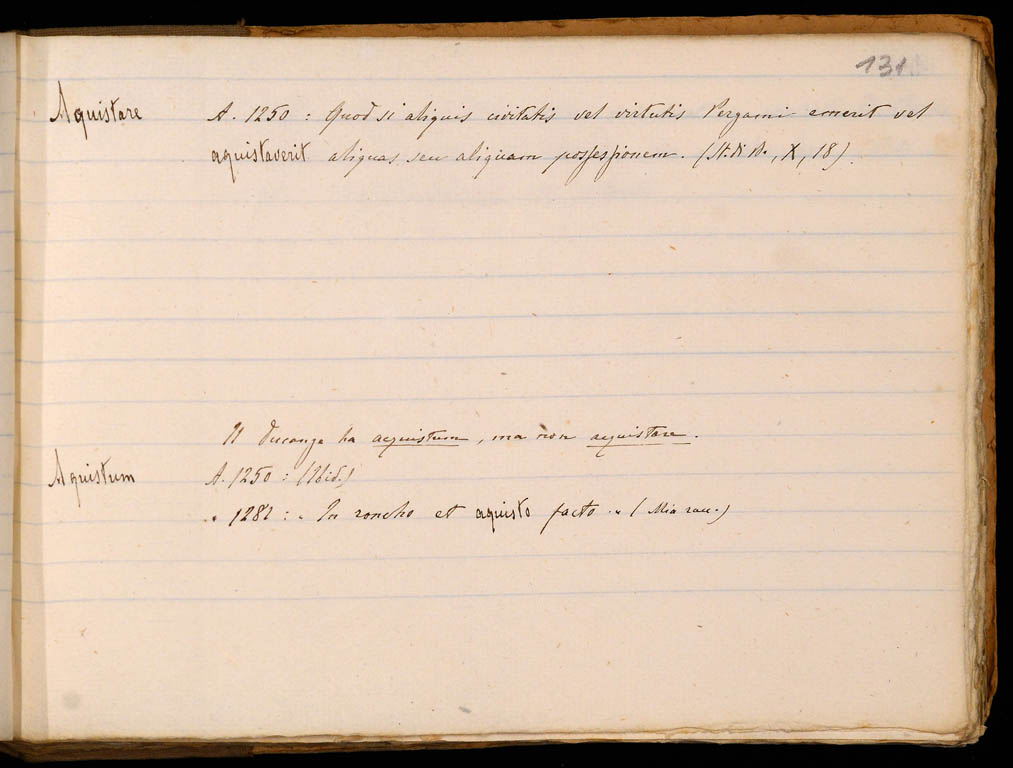 131
Aquistare A. 1250 : Quod si aliquis civitatis vel virtutis Pergami emerit vel
aquistaverit aliquas seu aliquam possessionem. (St. di B., X, 18).
Il Ducange ha acquistum, ma non acquistare.
Aquistum A. 1250 : (Ibid.)
" 1281 : " In roncho et aquisto facto " (Mia racc.)